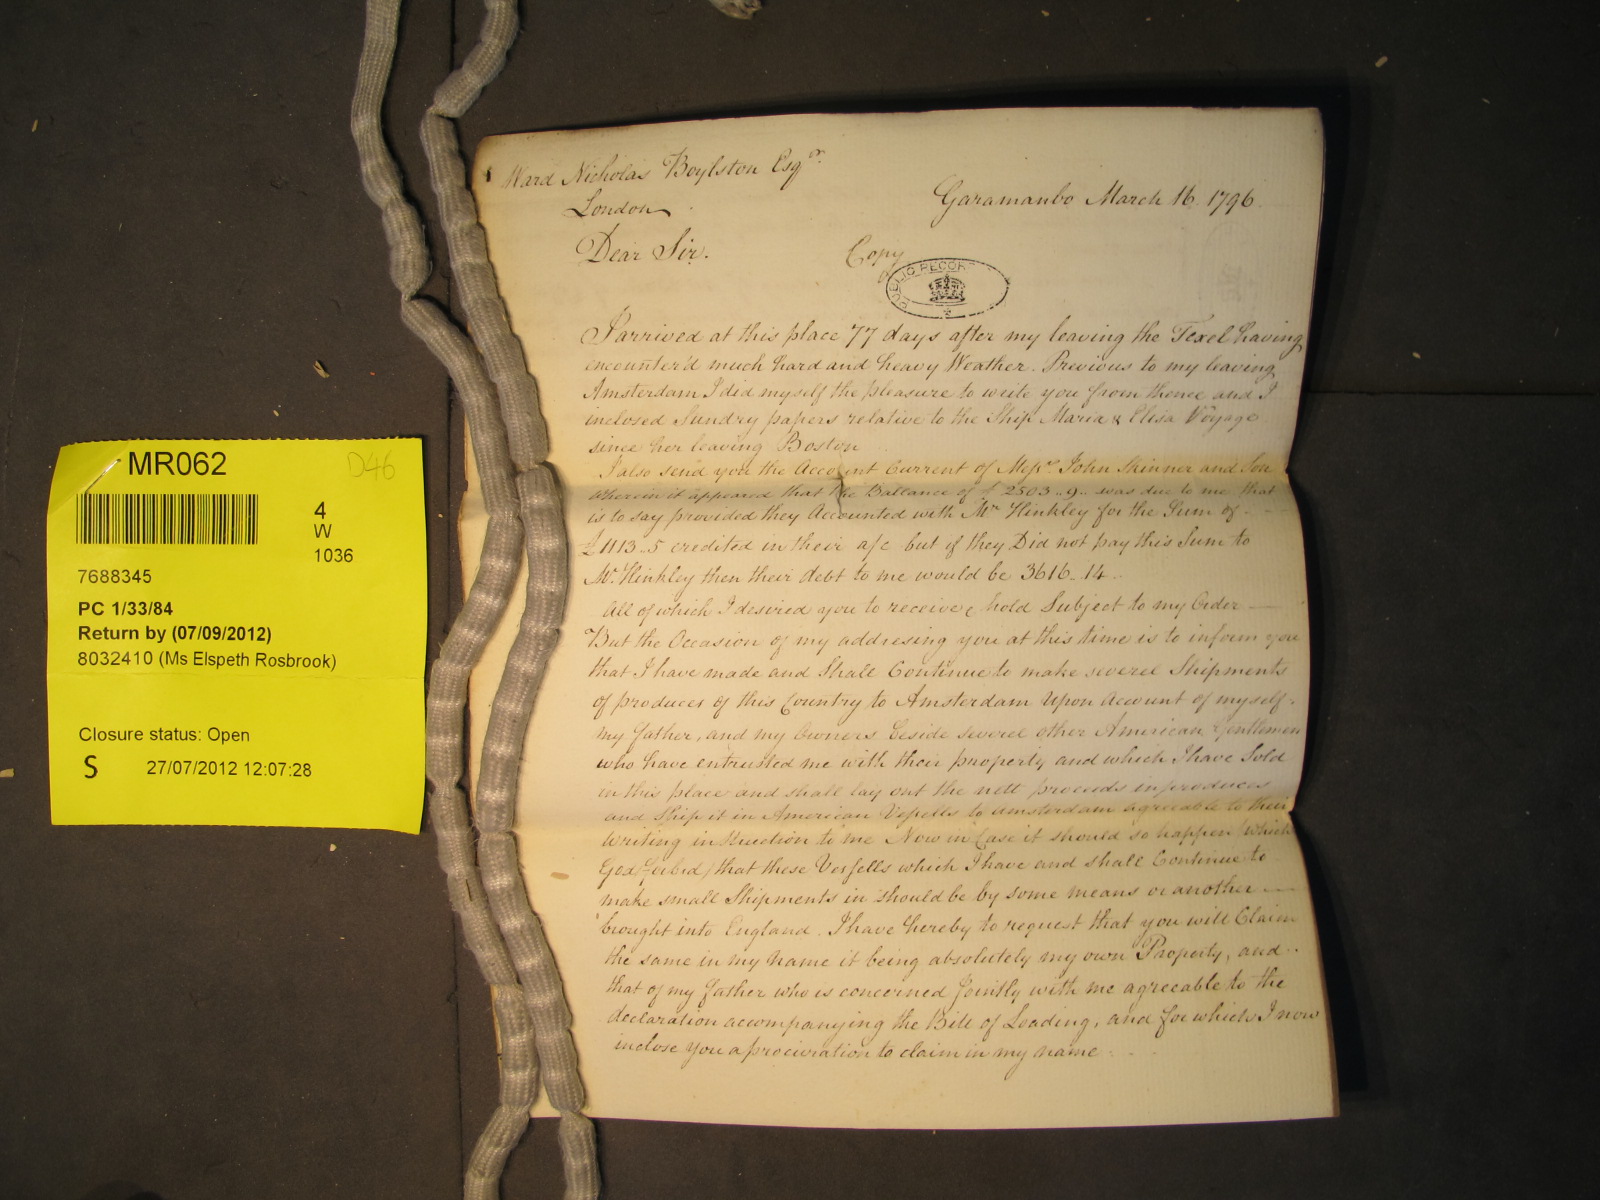 MR062
D46
4
W
1036
7688345
PC 1/33/84
Return by (07/09/2012)
8032410 (Ms Elspeth Rosbrook)
Closure status: Open
S 27/07/2012 12:07:28
Ward Nicholas Boylston Esqr.
London
Garamanbo March 16. 1796.
Dear Sir.
Copy
PUBLIC RECOR
I arrived at this place 77 days after my leaving the Texel having
encounter'd much hard and heavy Weather. Previous to my leaving
Amsterdam I did myself the pleasure to write you from thence and I
inclosed Sundry papers relative to the Ship Maria & Elisa Voyage
since her leaving Boston
I also send you the Account Current of Messrs. John Skinner and Son
wherein it appeared that the Ballance of £ 2503..9.. was due to me that
is to say provided they Accounted with Mr Hinkley for the Sum of
£1113..5 credited in their a/c but if they Did not pay this Sum to
Mr. Hinkley then their debt to me would be 3616..14..
All of which I desired you to receive & hold Subject to my Order
But the Occasion of my addresing you at this time is to inform you
that I have made and Shall Continue to make severel Shipments
of produces of this Country to Amsterdam Upon Account of myself.
my father, and my Owners beside several other American Gentlemen
who have entrusted me with their property and which I have Sold
in this place and shall lay out the nett proceeds in produces
and Ship it in American Vessells to amsterdam agreeable to their
writing instruction to me Now in Case it should so happen (which
God forbid) that these Vessells which I have and shall Continue to
make small Shipments in should be by some means or another
brought into England. I have hereby to request that you will Claim
the same in my name it being absolutely my own Property, and
that of my father who is concerned Jointly with me agreeable to the
declaration accompanying the Bill of Loading, and for which I now
inclose you a procuration to claim in my name